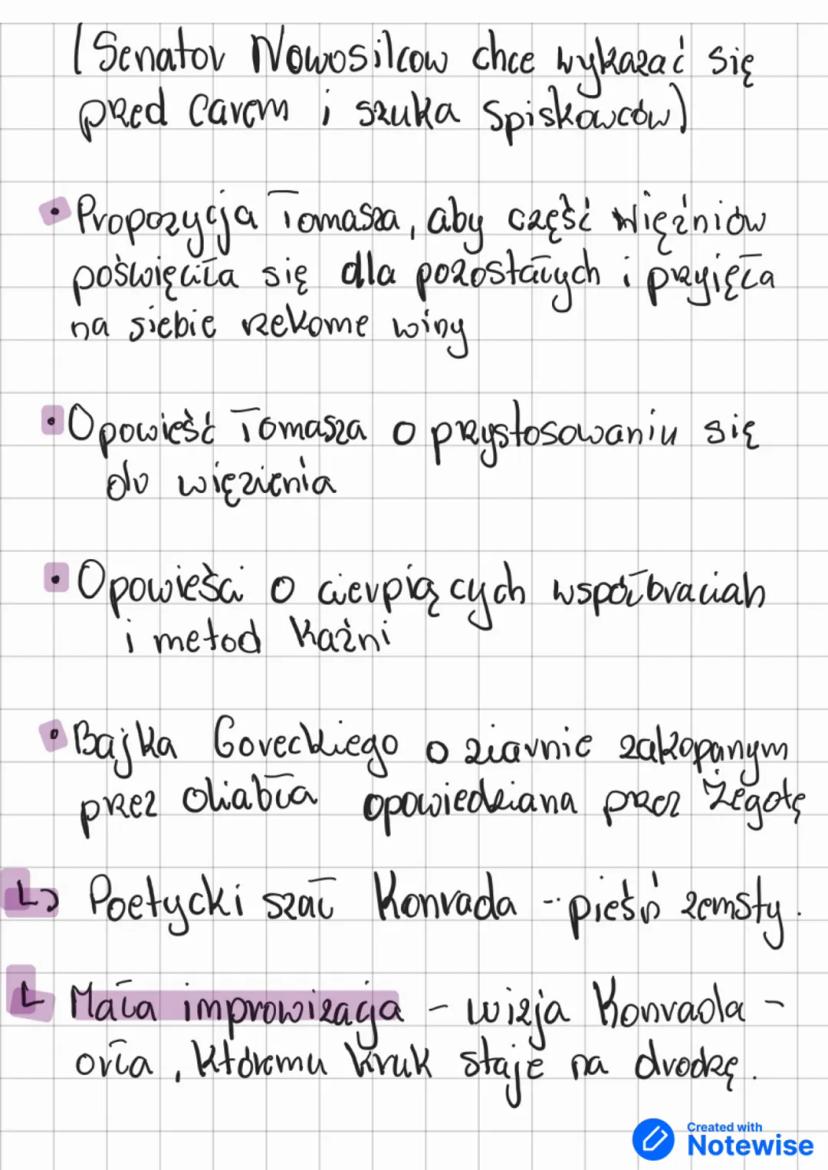 (Senator Nowosilcow chce wykazać się
pred carem i szuka spiskowców)
• Propozycja Tomasza, aby część więźniów
poświęciła się dla pozostałych i przyjęła
na siebie rzekome winy
• Opowieść Tomasza o przystosowaniu się
do więzienia
• Opowieści o cierpiących współbraciah
i metod kaźni
• Bajka Goreckiego o ziarnie zakopanym
przez diabła opowiedziana przez Żegotę
↳ Poetycki szał Konrada - pieśń zemsty.
↳ Mała improwizacja - wizja Konrada -
orła, któremu kruk staje na drodzę.
Created with
Notewise